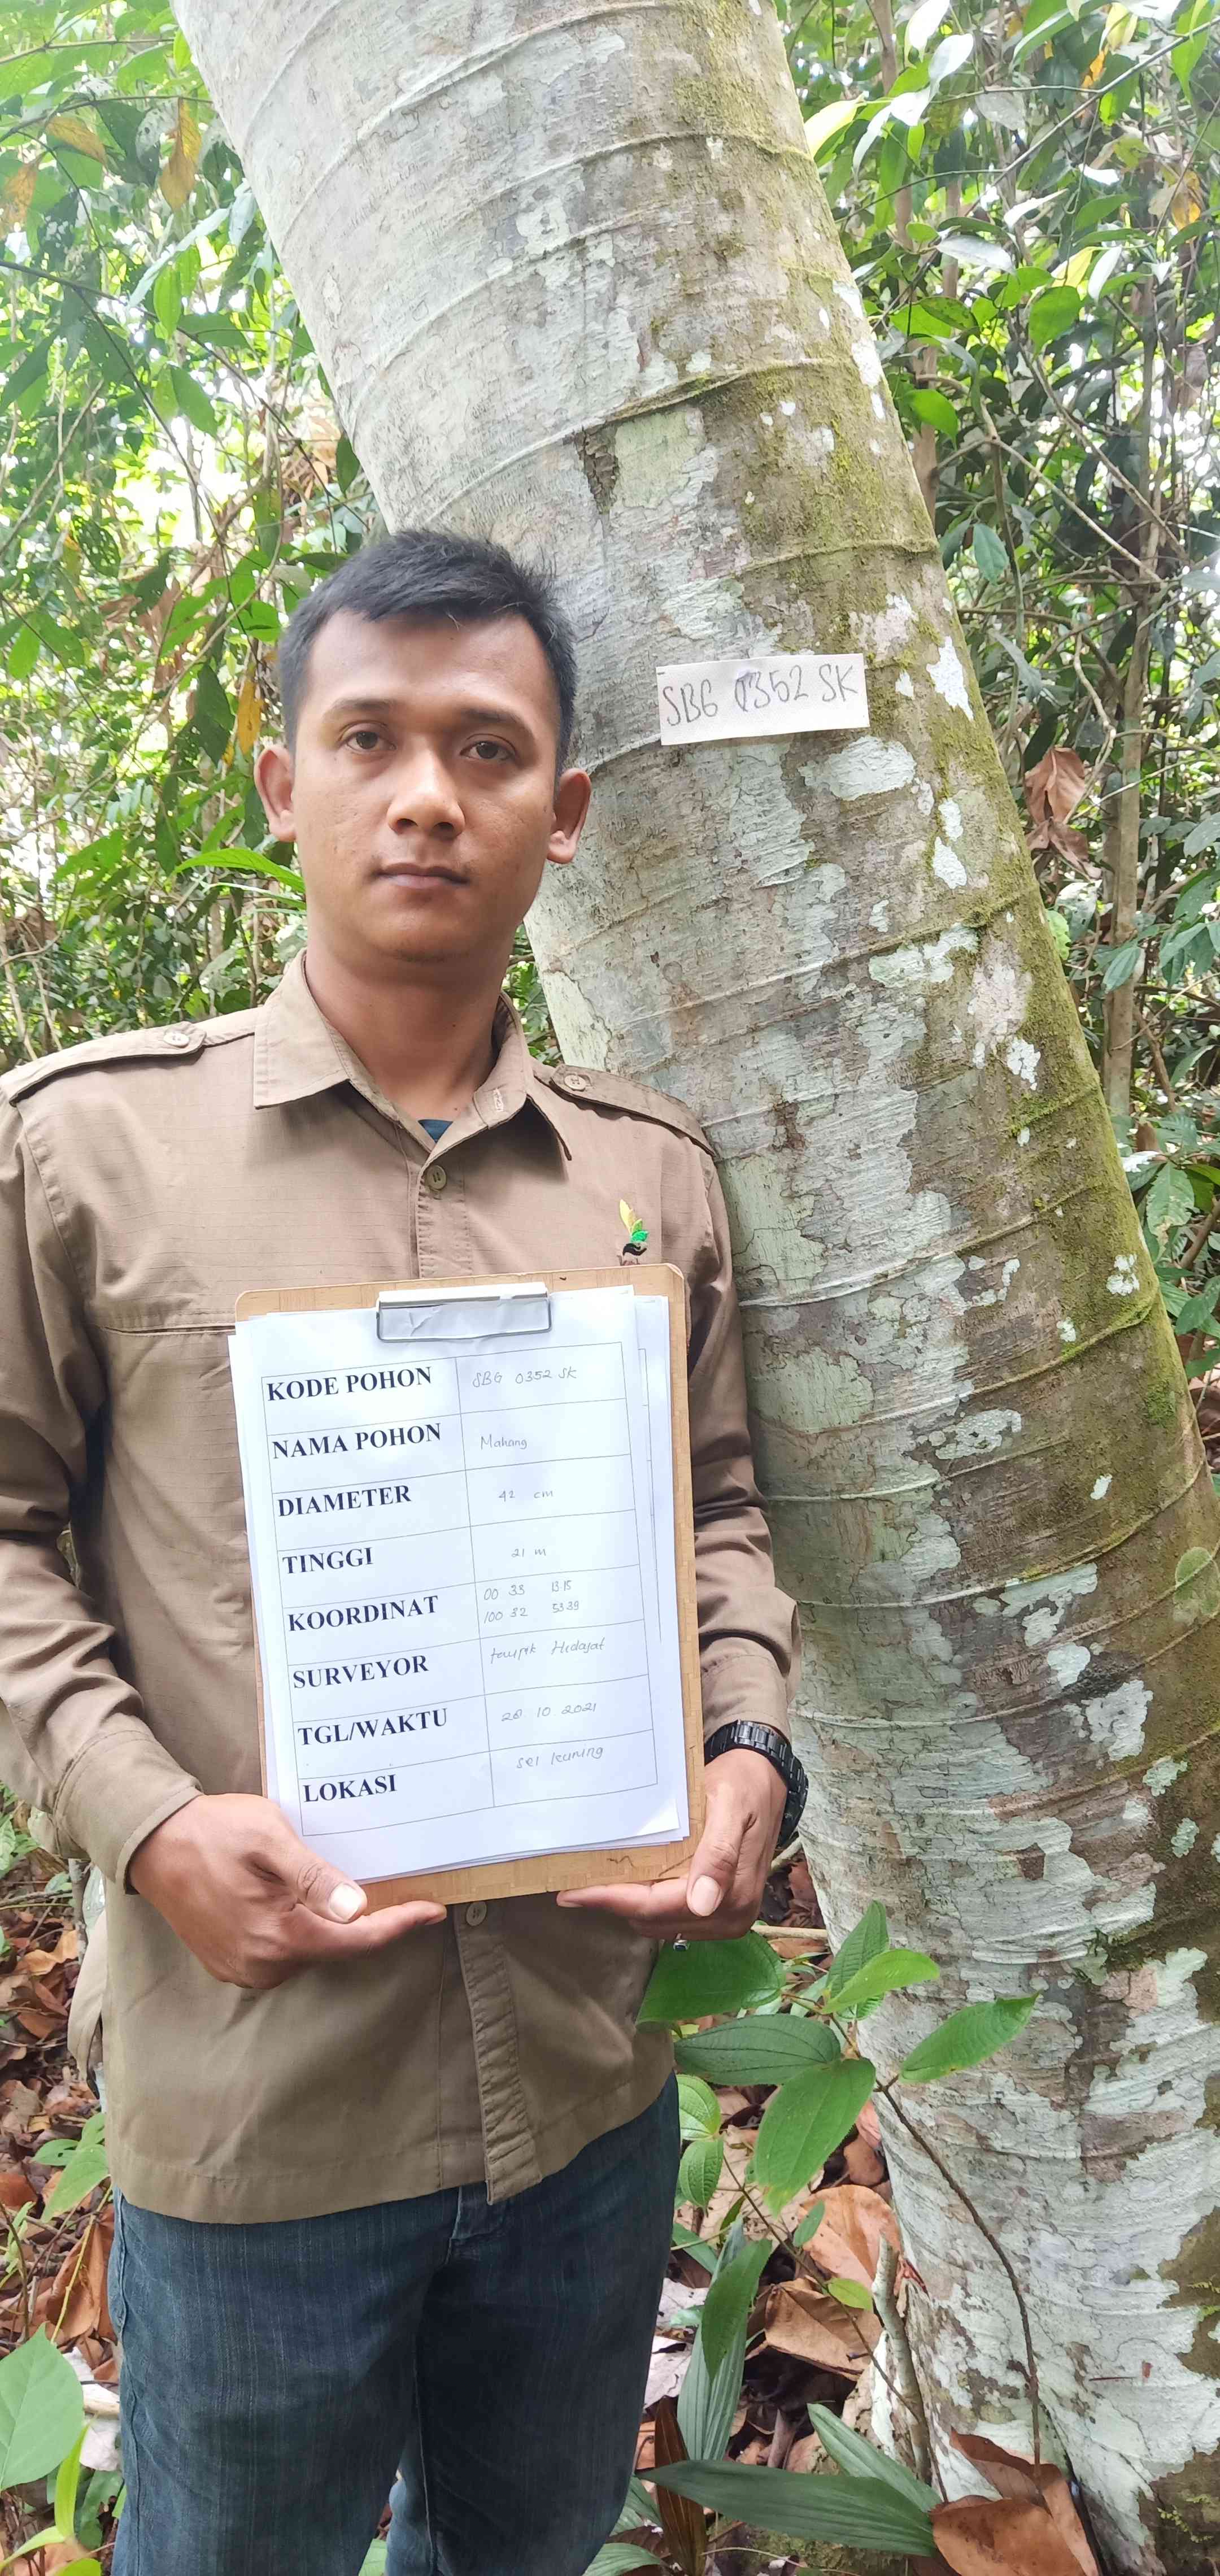 SBG 0352 SK
KODE POHON SBG 0352 SK
NAMA POHON Mahang
DIAMETER 42 cm
TINGGI 21 m
KOORDINAT 00 33 13.15
100 32 53.39
SURVEYOR taupik Hidayat
TGL/WAKTU 26 10 2021
LOKASI sei kuning